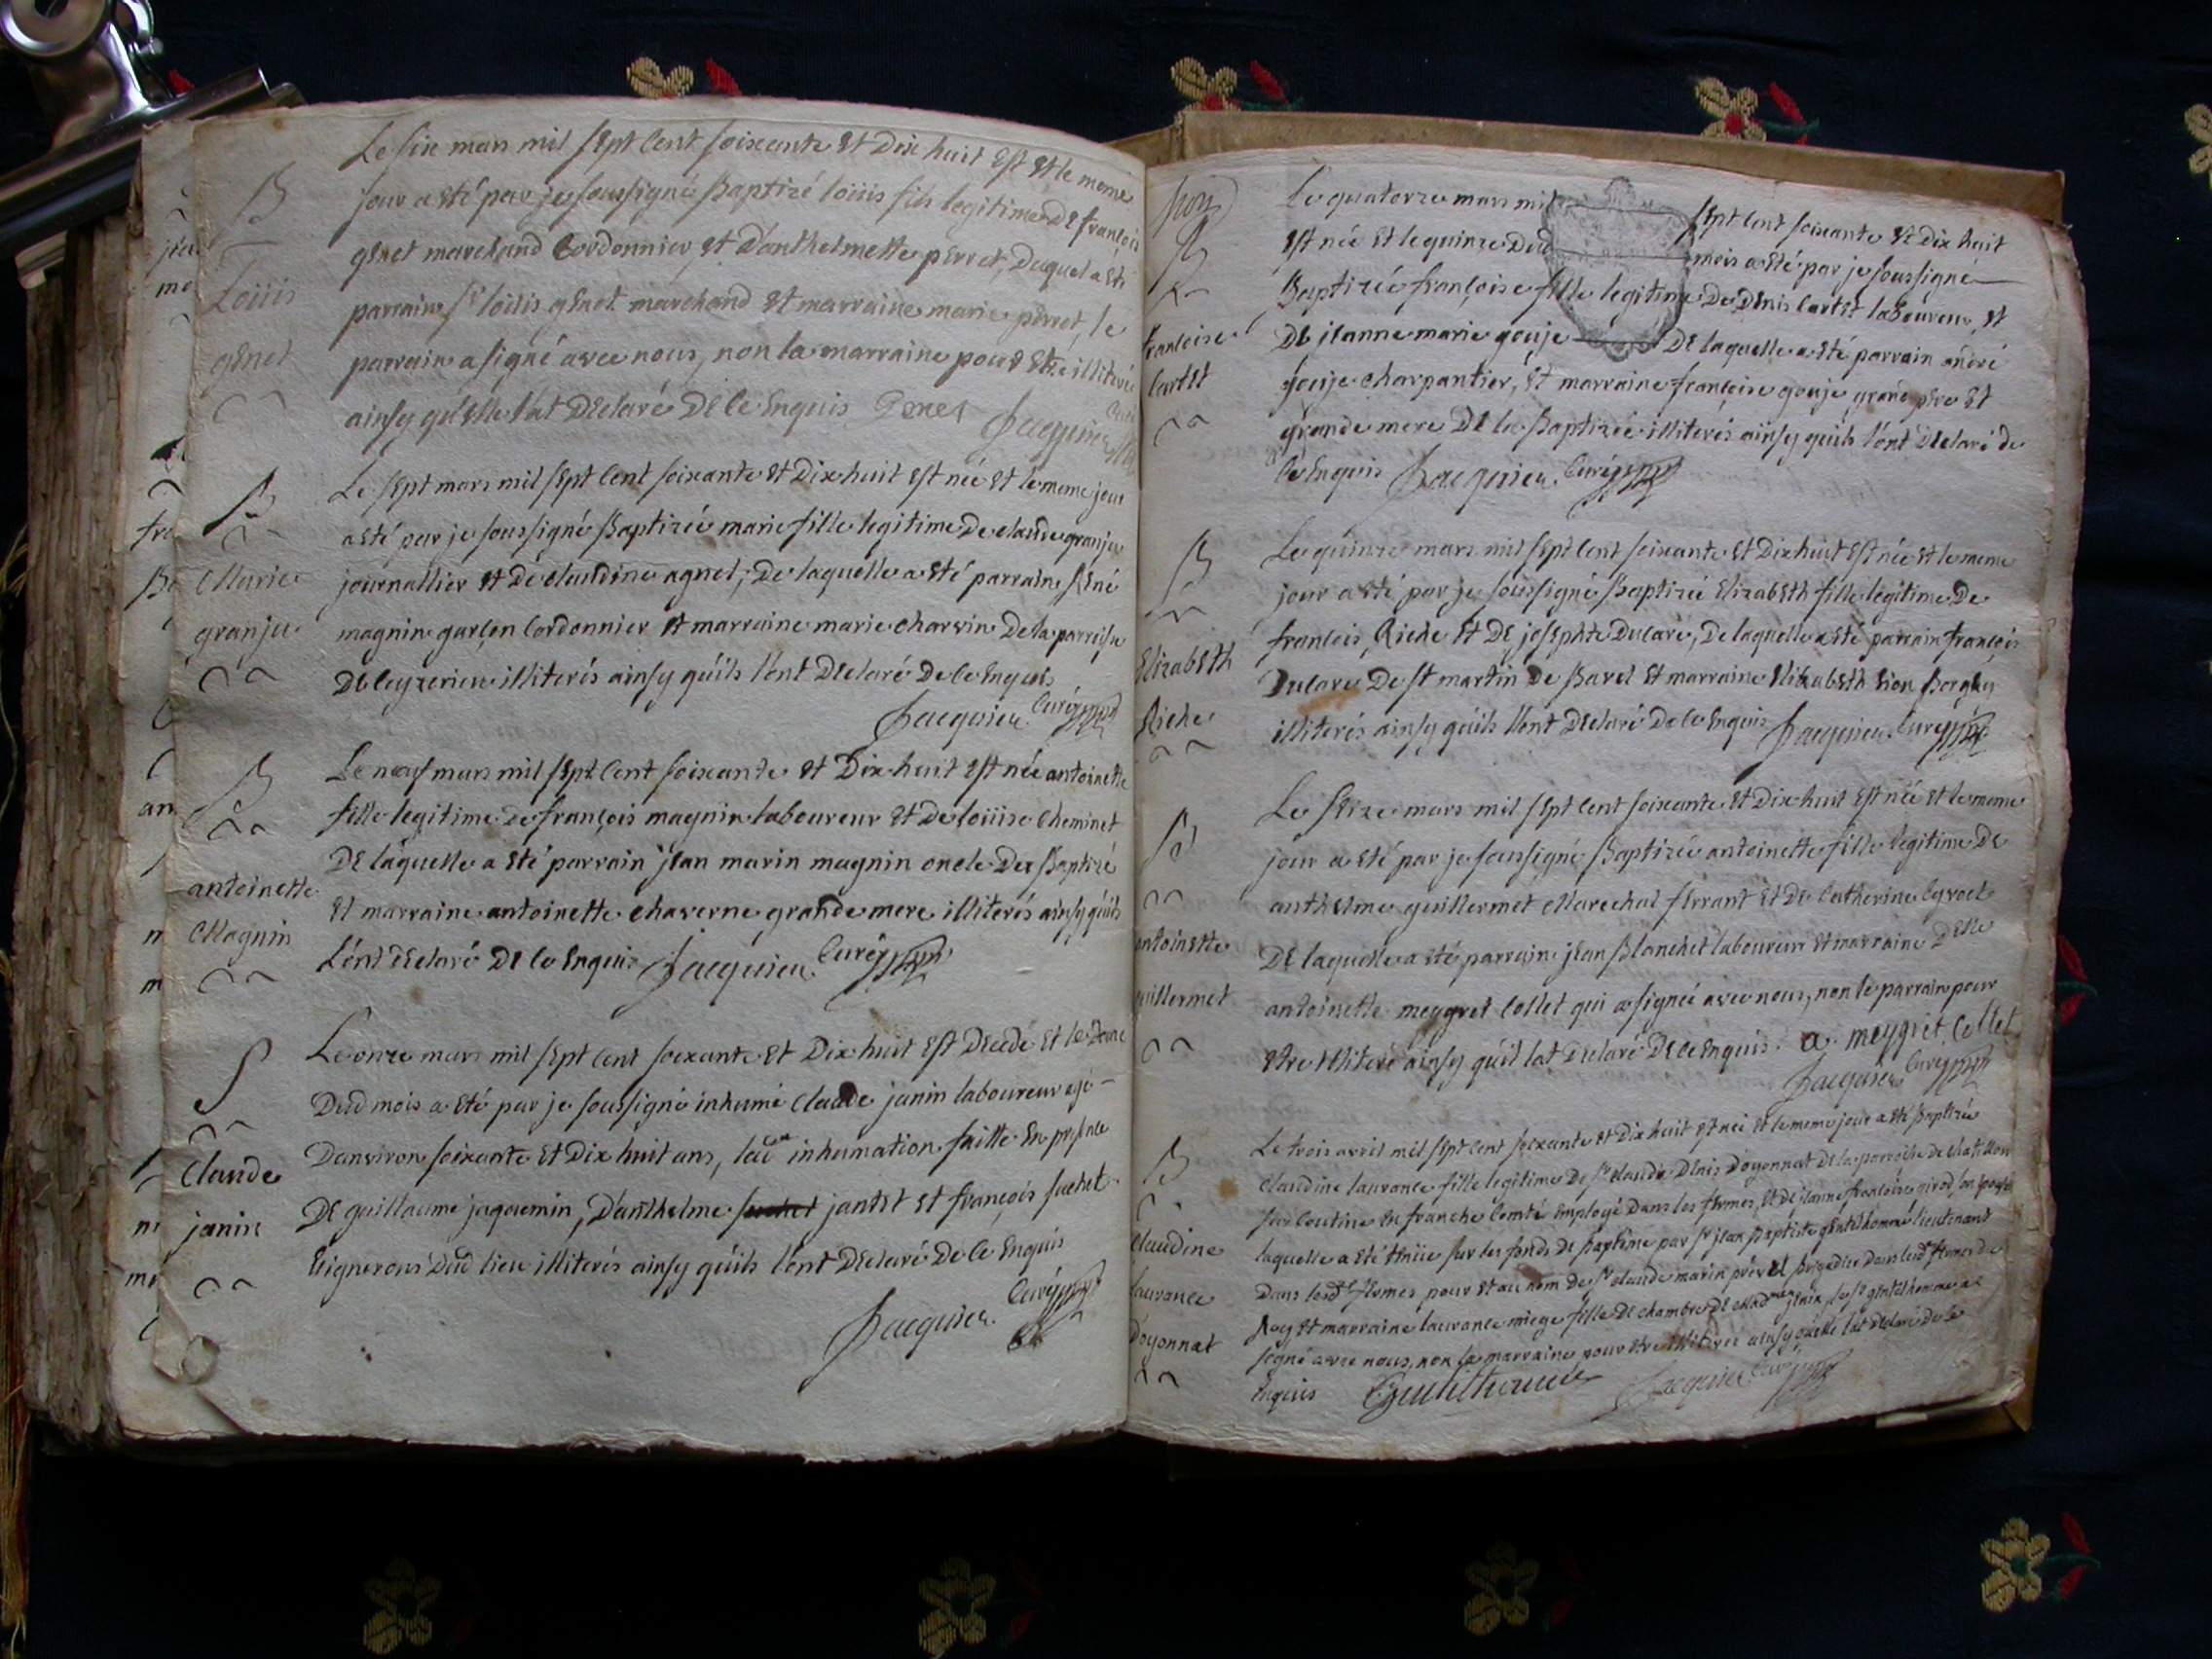 Le six mars mil sept cent soixante et Dix huit Est et le meme
B jour a eté par je soussigné Baptizé loüis fils legitime De francois
genet marchand Cordonnier, et D'anthelmette perret, Duquel a eté
Loüis parrain Sr loüis genet marchand et marraine marie perret, le
genet parrain a signé avec nous, non la marraine pour Etre illiterée
ainsy qu'elle l'at Declaré De ce Enquis Genet Jacquier Curé
B Le sept mars mil sept Cent soixante et Dix huit est née et le meme jour
a eté par je soussigné Baptizée marie fille legitime De claude granju
Marie journallier et De claudine agnel; De laquelle a eté parrain René
granju magnin garçon Cordonnier et marraine marie charvin De la parroisse
De leyzerieu illiterés ainsy qu'ils l'ont Declaré De ce Enquis
Jacquier Curé
B Le neuf mars mil sept Cent soixante et Dix huit est née antoinette
fille legitime de françois magnin laboureur et De loüise Cheminet
De laquelle a eté parrain jean marin magnin oncle De Baptizé
antoinette et marraine antoinette chaverne grande mere illiterés ainsy qu'ils
Magnin l'ont Declaré De ce Enquis Jacquier Curé
S Le onze mars mil sept cent soixante et Dix huit est Decedé et le
Dud mois a eté par je soussigné inhumé claude janin laboureur agé
Claude D'anviron soixante et Dix huit ans, lad inhumation faitte En presence
janin De guillaume jaquemin, D'anthelme suchet jantet et françois suchet
vignerons Dud lieu illiterés ainsy qu'ils l'ont Declaré De ce Enquis
Jacquier Curé
Le quatorze mars mil sept cent soixante et Dix huit
B est née et le quinze Dud mois a eté par je soussigné
Baptizée françoise fille legitime De Denis Cartet laboureur, et
francoise De jeanne marie gouje De laquelle a eté parrain andré
Cartet gouje charpantier, et marraine françoise gouje grand pere et
grande mere De la Baptizée illiterés ainsy qu'ils l'ont Declaré de
ce Enquis Jacquier Curé
B Le quinze mars mil sept cent soixante et Dix huit est née et le meme
jour a eté par je soussigné Baptizée Elizabeth fille legitime De
francois Riche et De josephte Ducare, De laquelle a eté parrain françois
Elizabeth Ducare De st martin De Bavel et marraine Elizabeth
Riche illiterés ainsy qu'ils l'ont Declaré De ce Enquis Jacquier Curé
Le seize mars mil sept cent soixante et Dix huit est née et le meme
B jour a eté par je soussigné Baptizée antoinette fille legitime De
anthelme guillermet Marechal ferrant et De Catherine Cyvoct
antoinette De laquelle a eté parrain jean Blanchet laboureur et marraine Delle
guillermet antoinette meygret Collet qui a signée avec nous, non le parrain pour
etre illiteré ainsy qu'il lat Declaré De ce Enquis. a. meygret Collet
Jacquier Curé
Le trois avril mil sept cent soixante et Dix huit est née et le meme jour a eté Baptizée
B claudine laurance fille legitime De Sr claude Denis D'oyonnat De la parroisse de chatillon
sur Coutine en franche Comté Employé Dans les fermes, et De jeanne françoise girod,
Claudine laquelle a eté tenüe sur les fonds De Baptême par Sr jean Baptiste gentilhomme lieutenant
laurance Dans lesd fermes pour et au nom De Sr claude marin prevel Brigadier Dans lesd fermes du
D'oyonnat Roy et marraine laurance miege fille De chambre De le Sr gentilhomme a
signé avec nous, non la marraine pour etre illiterée ainsy qu'elle lat Declaré De ce
Enquis Gentilhomme Jacquier Curé